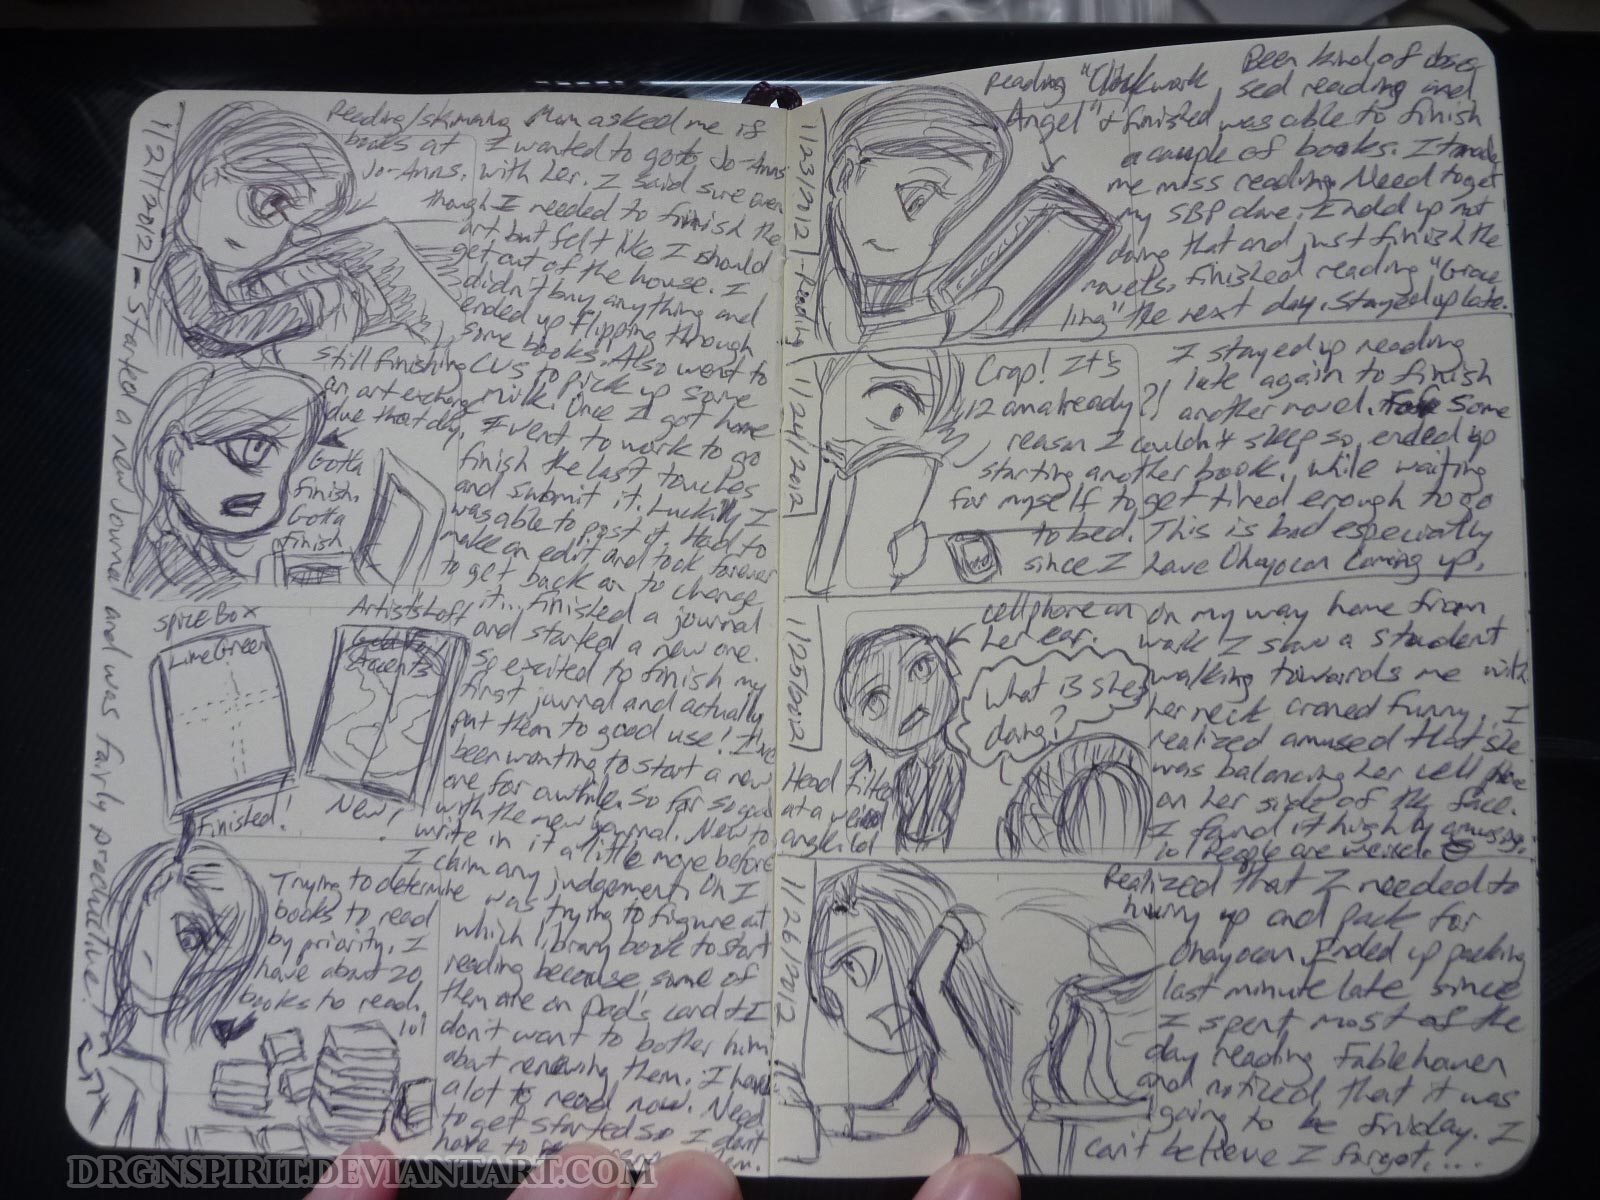 1/21/2012 - Started a new journal and was fairly productive!
Reading/skimming
books at
Jo-Anns.
Mom asked me if
I wanted to go to Jo-Anns
with her. I said sure even
though I needed to finish the
art but felt like I should
get out of the house. I
didn't buy anything and
ended up flipping through
some books. Also went to
CVS to pick up some
milk. Once I got home
I went to work to go
finish the last touches
and submit it. Luckily I
was able to post it. Had to
make an edit and took forever
to get back on to change
it... finished a journal
and started a new one.
So excited to finish my
first journal and actually
put them to good use! I've
been wanting to start a new
one for awhile. So far so good
with the new journal. Need to
write in it a little more before
I claim any judgement. Oh I
was trying to figure out
which library book to start
reading because some of
them are on Dad's card & I
don't want to bother him
about renewing them. I have
a lot to read now. Need
to get started so I don't
have to
Still finishing
an art exchange
due that day.
Gotta
finish.
Gotta
finish
Spice Box
Lime Green
Finished!
Artist's Loft
Gold Foil
Accents
New!
Trying to determine
books to read
by priority. I
have about 20
books to read.
lol
1/23/2012 - Reading
Reading "Clockwork
Angel" & finished
Been kind of obses
sed reading and
was able to finish
a couple of books. It made
me miss reading. Need to get
my SBP done. I hold up not
doing that and just finish the
novels. Finished reading "Grace
ling" the next day. Stayed up late.
1/24/2012
Crap! It's
12 am already?!
I stayed up reading
late again to finish
another novel. For some
reason I couldn't sleep so, ended up
starting another book, while waiting
for myself to get tired enough to go
to bed. This is bad especially
since I have Ohayocon coming up.
1/25/2012
cellphone on
her ear.
What is she
doing?
Head tilted
at a weird
angle. lol
On my way home from
work I saw a student
walking towards me with
her neck craned funny. I
realized amused that she
was balancing her cell phone
on her side of the face.
I found it highly amusing.
lol People are weird.
1/26/2012
Realized that I needed to
hurry up and pack for
Ohayocon. Ended up packing
last minute late since
I spent most of the
day reading Fablehaven
and noticed that it was
going to be Friday. I
can't believe I forgot....
DRGNSPIRIT.DEVIANTART.COM